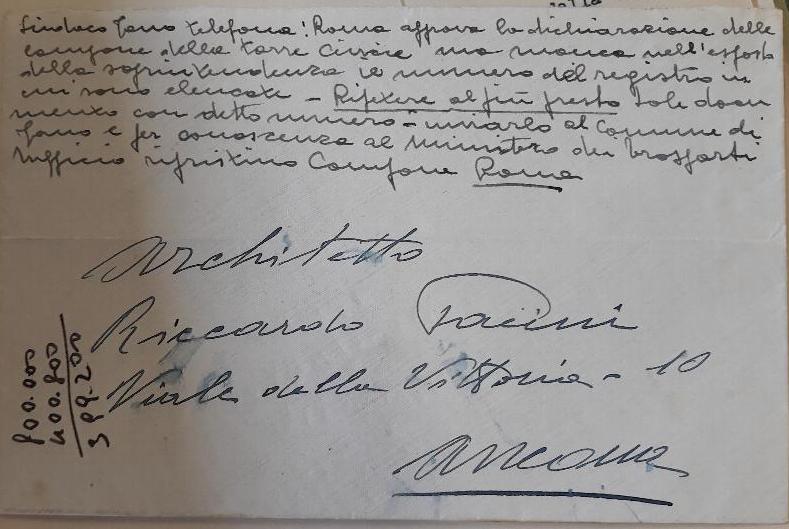 Sindaco Fano telefona: Roma approva la dichiarazione delle
campane della torre Civica ma manca nell'esposto
della soprintendenza il numero del registro in
cui sono elencate - Ripetere al più presto tale docu
mento con detto numero - inviarlo al Comune di
Fano e per conoscenza al Ministero dei Trasporti
Ufficio ripristino Campane Roma
Architetto
Riccardo
Viale della Vittoria - 10
Ancona
800.000
400.800
399.200